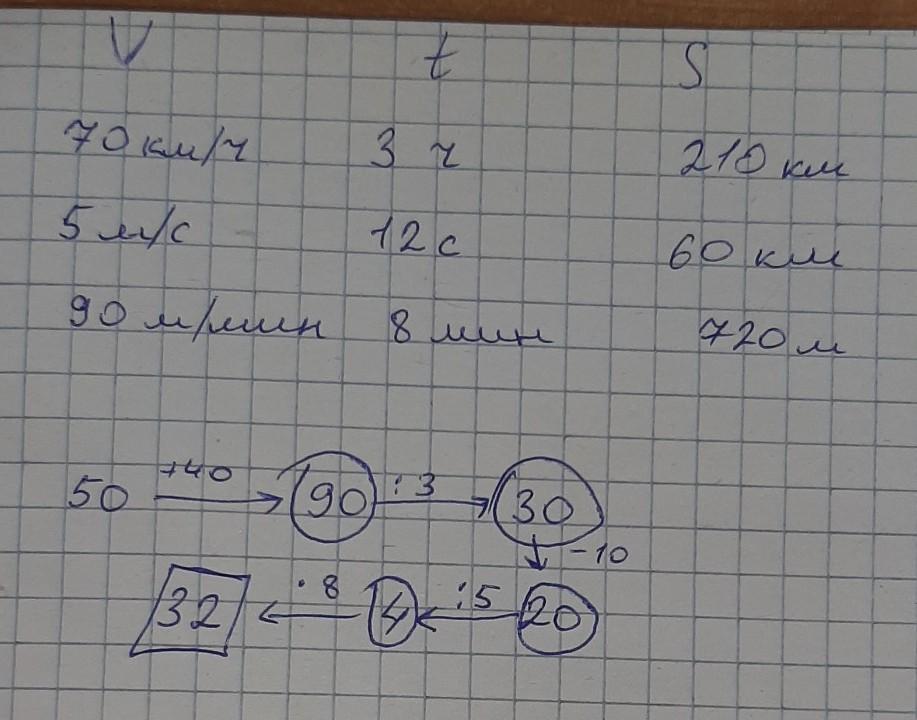 V t S
70 км/ч 3 ч 210 км
5 м/с 12 с 60 км
90 м/мин 8 мин 720 м
50 +40 90 :3 30
-10
32 ·8 4 :5 20